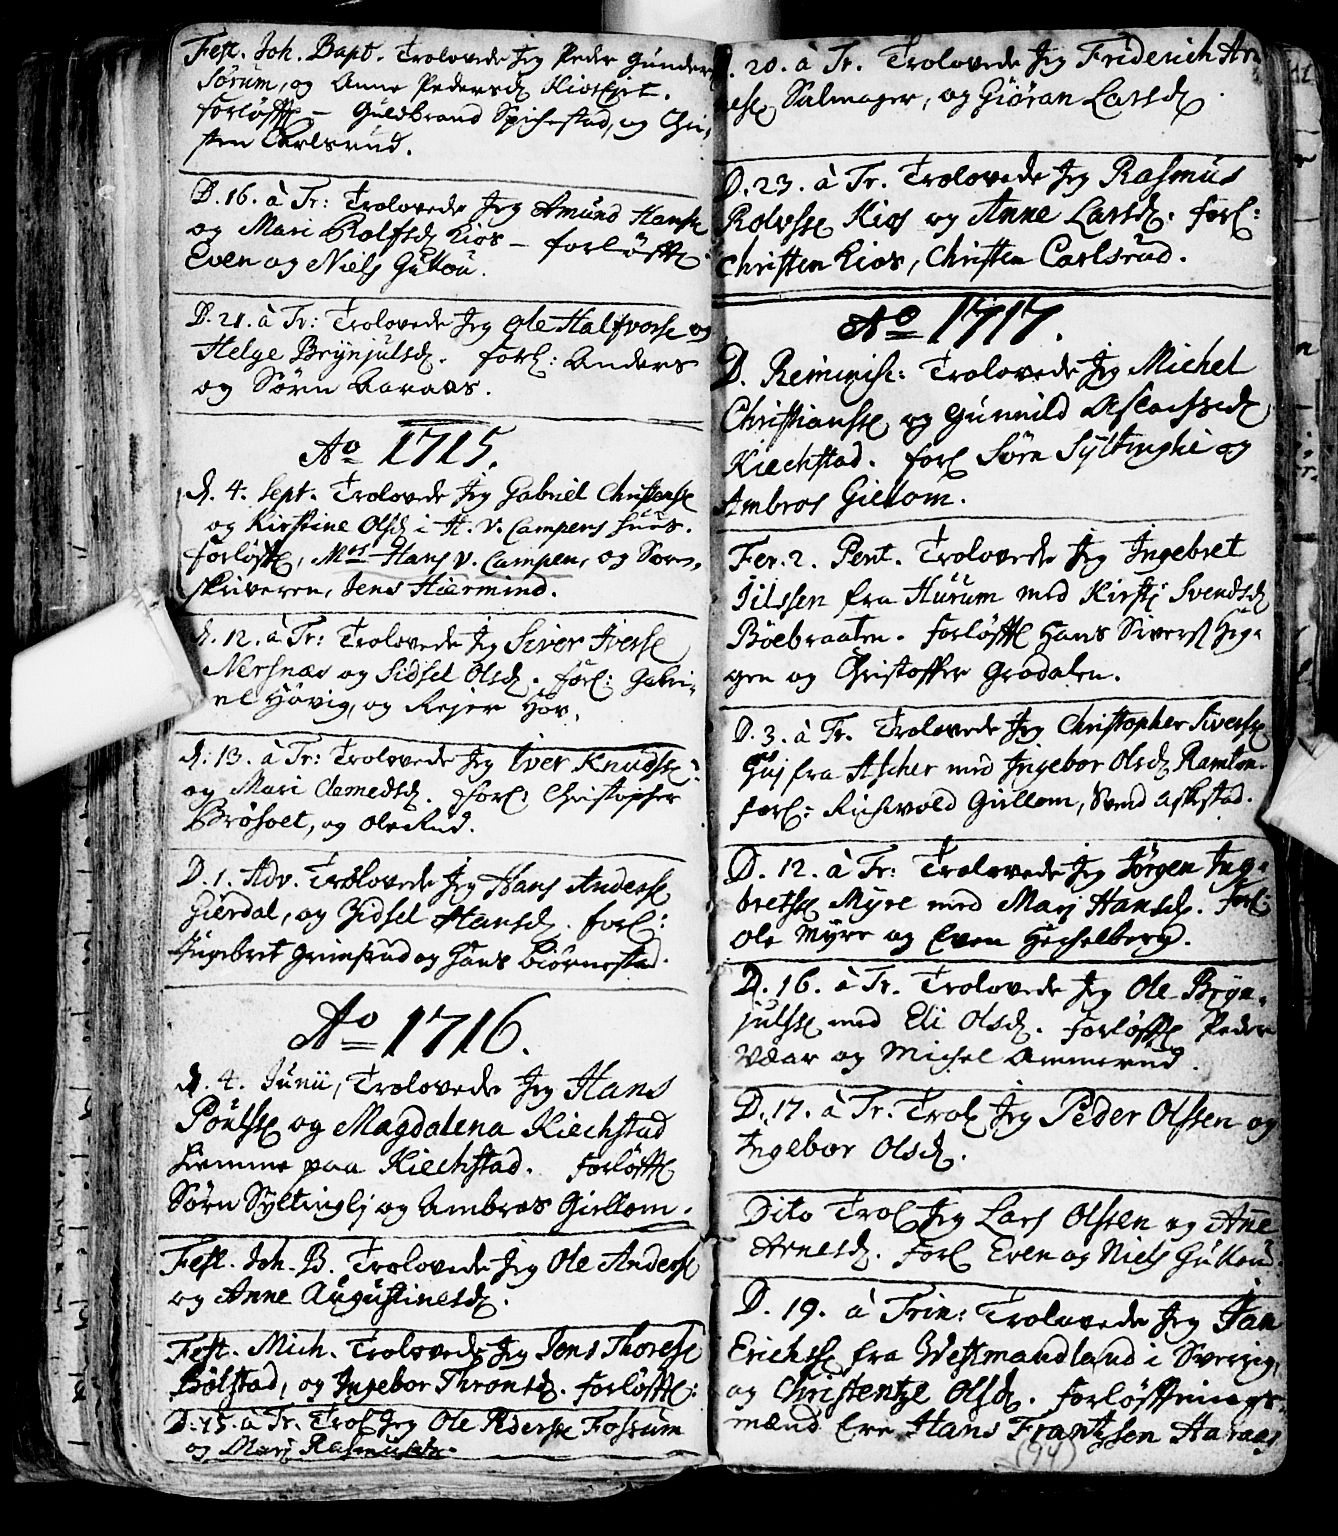 Fest. Joh. Bapt. Trolovede Jeg Peder Gunders
Sørum, og Anne Pedersd
forløfft — Guldbrand Spichestad, og Chri-
sten Carlsrud.
D. 16. à Tr: Trolovede Jeg Amund Hanss
og Mari Rolfsd Kios — forløfft
Even og Niels Gukou.
D. 21. à Tr: Trolovede Jeg Ole Halfvorss og
Helge Brynjulsd. forl: Anders
og Sørn Aaraas.
Ao 1715.
d. 4. Sept. Trolovede Jeg Gabriel Christenss
og Kirstine Olsd i H. V. Campens Huus.
forløfft, Mos Hans V. Campen, og Sorn-
skriveren, Jens Hiermind.
d. 12. à Tr: Trolovede Jeg Siver Iverss
Nersnæs og Sidsel Olsd. forl: Gabri-
el Høvig, og Rejer Hov.
d. 13. à Tr: Trolovede Jeg Iver Knudss
og Mari Clemedsd. forl: Christopher
Brøsoet, og Ole Rud.
D. 1. Adv. Trolovede Jeg Hans Anderss
Gierdal, og Zidsel Hansd. forl:
Ingebret Grimsrud og Hans Biørnestad.
Ao 1716.
d. 4. Junii, Trolovede Jeg Hans
Poulss og Magdalena Kiechstad
hiemme paa Kiechstad. forløfft
Sørn Syltinglj og Ambros Giellom.
Fest. Joh. B. Trolovede Jeg Ole Anderss
og Anne Augustinesd.
Fest. Mich. Trolovede Jeg Jens Thoress
Bølstad, og Ingebor Thronsd. forløfft:
D. 15. à Tr. Trol Jeg Ole Pederss Fossum
og Marj Rasmusdr.
D. 20. à Tr. Trolovede Jeg Friderich Ar-
ness Salmager, og Giøran Larsd.
D. 23. à Tr. Trolovede Jeg Rasmus
Rolvss Kios og Anne Larsd. forl:
Christen Kios, Christen Carlsrud.
Ao 1717.
D. Reminisc: Trolovede Jeg Michel
Christianss og Gunnild Aslachsd
Kiechstad. forl Sørn Syltinghi og
Ambros Giellom.
Fer. 2. Pent. Trolovede Jeg Ingebret
Jilssen fra Hurum med Kirstj Svendsd
Böebraaten. forløfft Hans Siverss Hig-
gen og Christoffer Grodalen.
D. 3. à Tr. Trolovede Jeg Christopher Siverss
fra Ascher med Ingebor Olsd Ramton.
forl: Richvold Gullom, Svend Askstad.
D. 12. à Tr: Trolovede Jeg Jørgen Inge-
bretss Myre med Marj Hansd. forl:
Ole Myre og Even Hechelberg.
D. 16. à Tr. Trolovede Jeg Ole Bryn-
julss med Eli Olsd. forløfft Peder
Væar og Michel Ammerud.
D. 17. à Tr: Trol Jeg Peder Olssen og
Ingebor Olsd.
Dito Trol Jeg Lars Olssen og Ane
Arnesd. forl Even og Niels Gukoud.
D. 19. à Trin: Trolovede Jeg Jan
Erichss fra Westmandland i Sverrig,
og Christentze Olsd. forløfftnings-
mænd Ere Hans Frantzsen Haraas
(94)